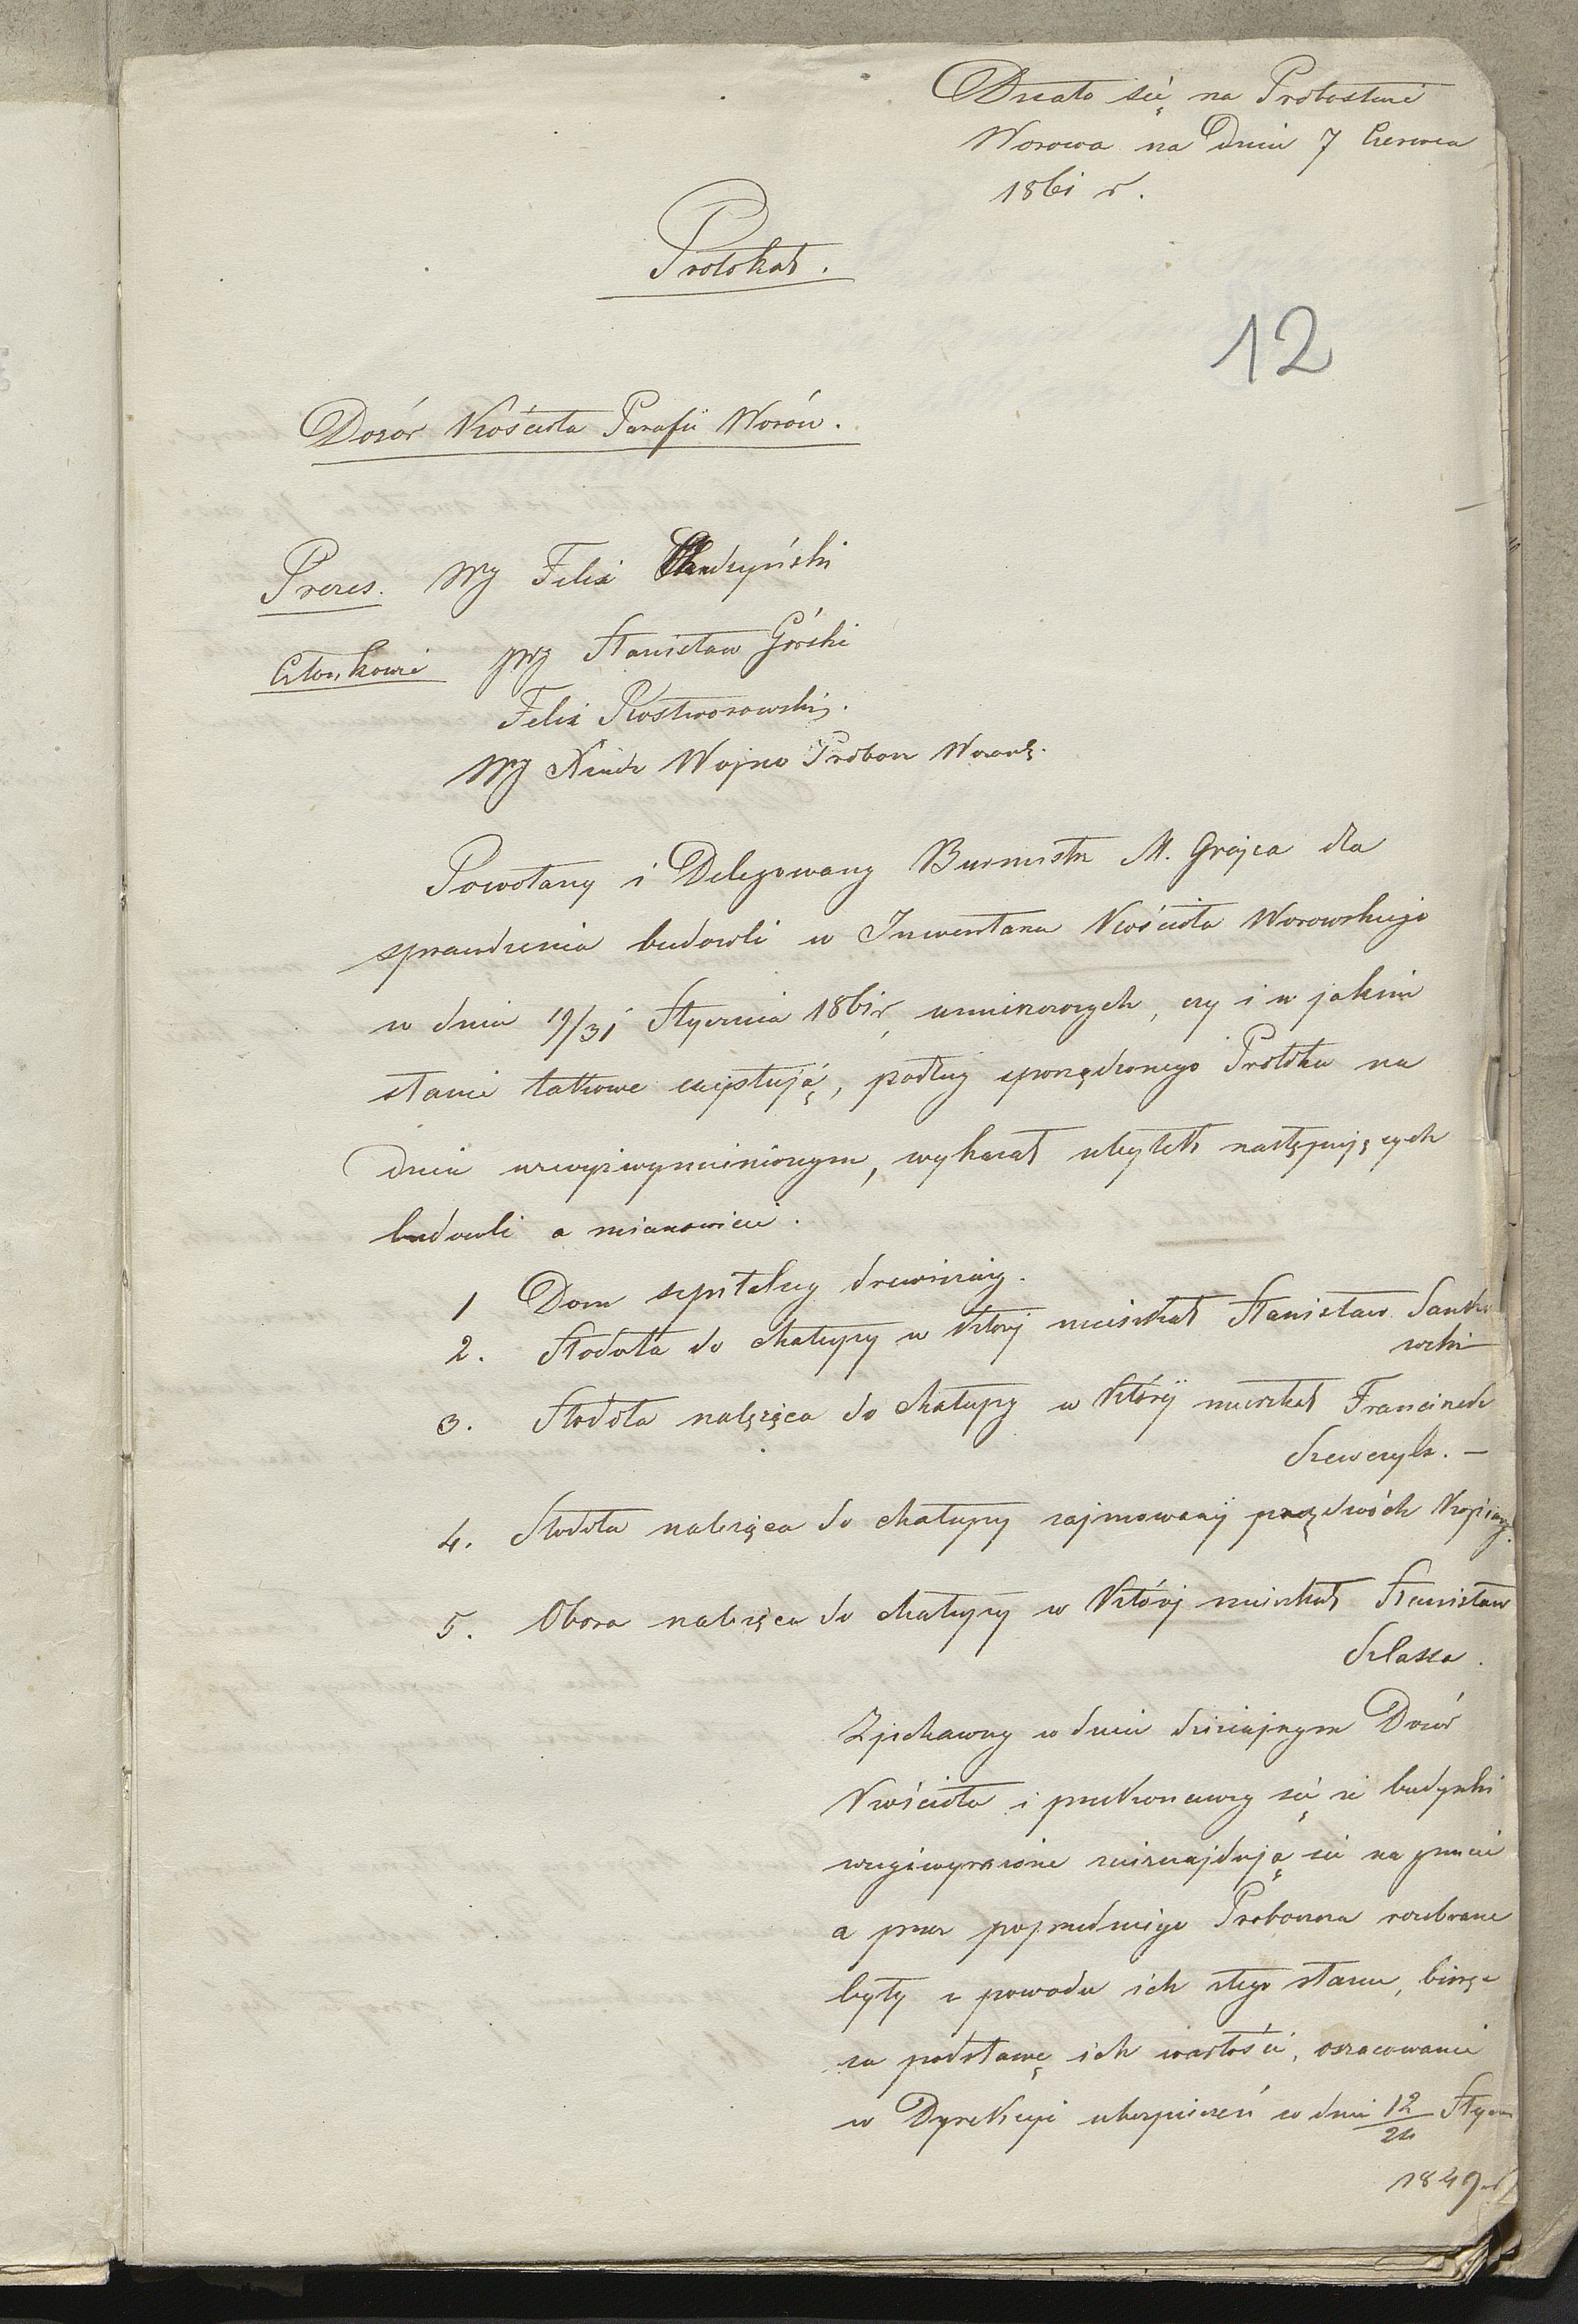 Działo się na Probostwie
Worowa na Dniu 7 Czerwca
1861 r.
Protokuł.
12
Dozór Kościoła Parafii Worów.
Prezes. WJ Felix
Członkowie WJ Stanisław Górski
Felix Rostworowski.
WJ Xiądz Wojno Probosz Worowa.
Powołany i Delegowany Burmistrz M. Grójca dla
sprawdzenia budowli w Inwentarzu Kościoła Worowskiego
w dniu 19/31 Stycznia 1861 r. umieszczonych, czy i w jakim
stanie takowe exystują, podług sporządzonego Protokułu na
dniu wzwyż wymienionym, wykazał ubytek następujących
budowli a mianowicie.
1 Dom szpitalny drewniany.
2. Stodoła do chałupy w której mieszkał Stanisław
wski
3. Stodoła należąca do chałupy w któréj mieszkał Franciszek
Szewczyk. —
4. Stodoła należąca do chałupy zajmowanéj przez dwóch
5. Obora należąca do chałupy w któréj mieszkał Stanisław
Szlasza.
Zjechawszy w dniu dzisiajszym Dozór
Kościoła i przekonawszy się że budynki
wzwyż wyrażone nieznajdują się na gruncie
a przez poprzedniego Proboszcza rozebrane
były z powodu ich złego stanu, biorąc
za podstawę ich wartości, oszacowanie
w Dyrekcyi ubezpieczeń w dniu 12/24 Stycz
1849 r.